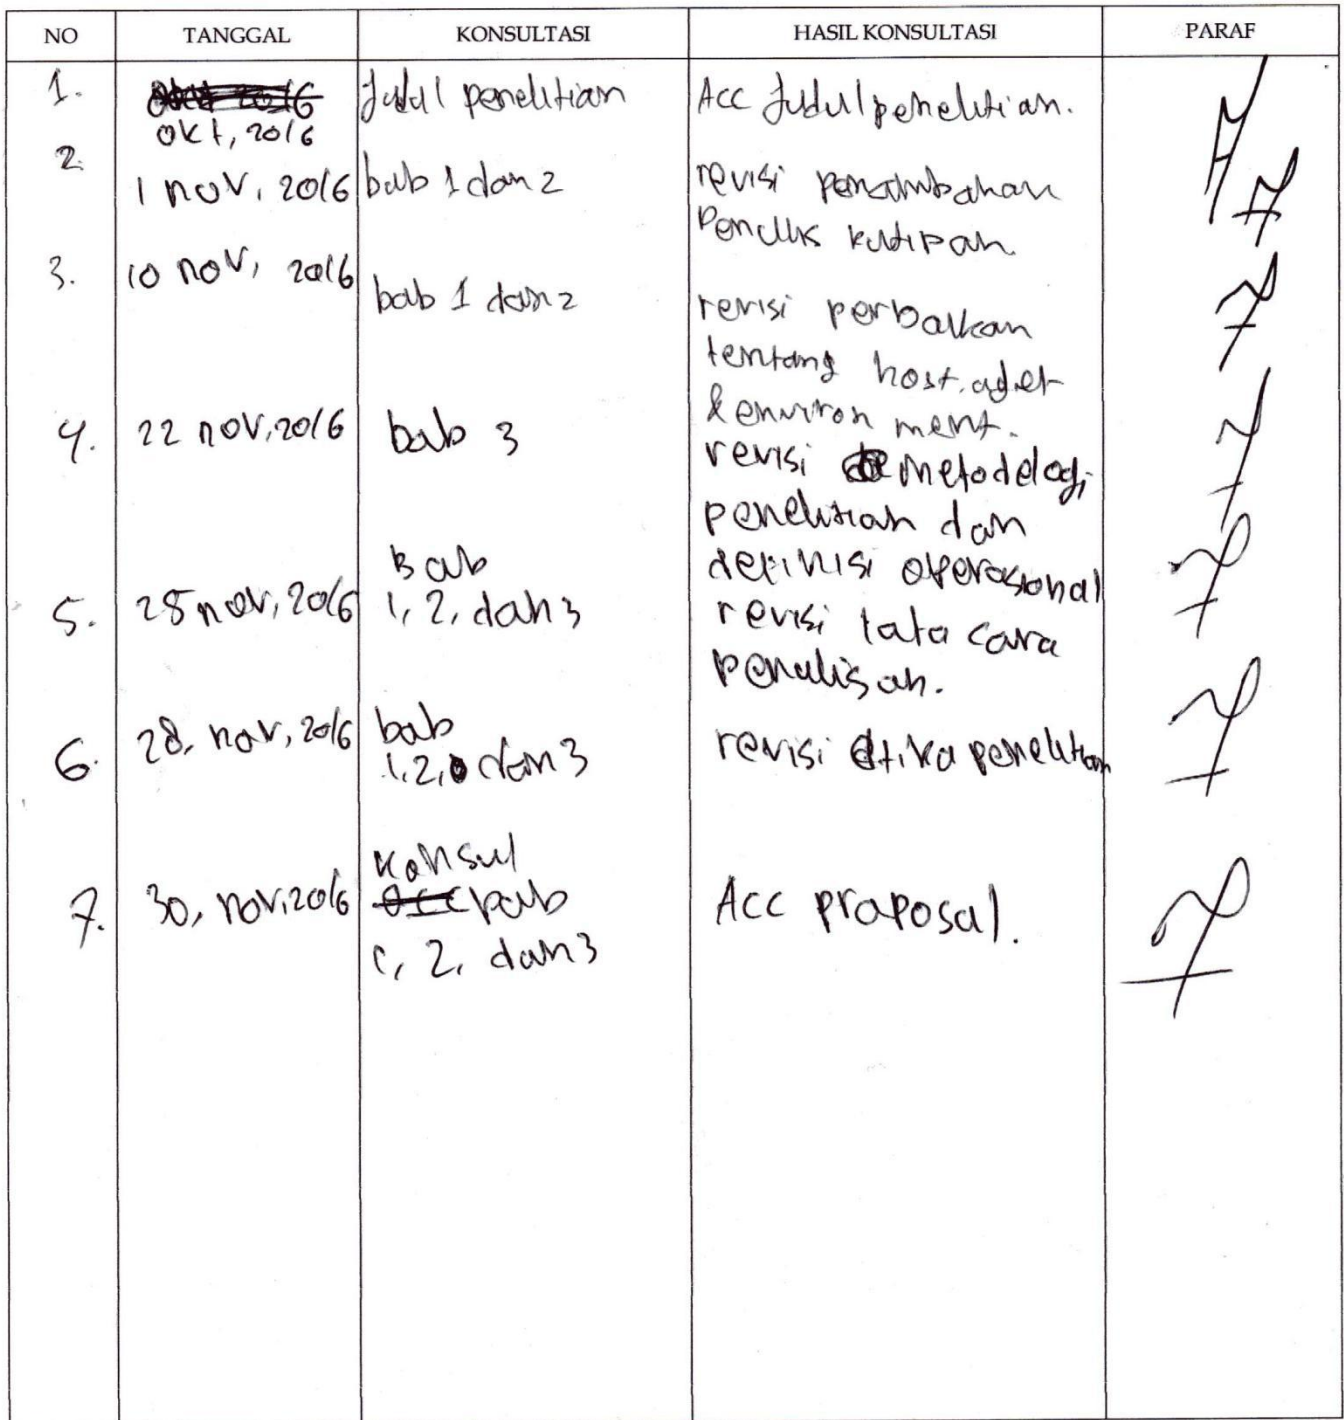 NO TANGGAL KONSULTASI HASIL KONSULTASI PARAF
1. Okt, 2016 Judul penelitian Acc Judul penelitian.
2. 1 nov, 2016 bab 1 dan 2 revisi penambahan
Penulis kutipan
3. 10 nov, 2016 bab 1 dan 2 revisi perbaikan
tentang host, aget
& environment.
4. 22 nov, 2016 bab 3 revisi metodelogi
penelitian dan
definisi operasional
5. 25 nov, 2016 Bab
1, 2, dan 3 revisi tata cara
penulisan.
6. 28, nov, 2016 bab
1, 2, dan 3 revisi etika penelitian
7. 30, nov, 2016 Konsul
bab
1, 2, dan 3 Acc proposal.